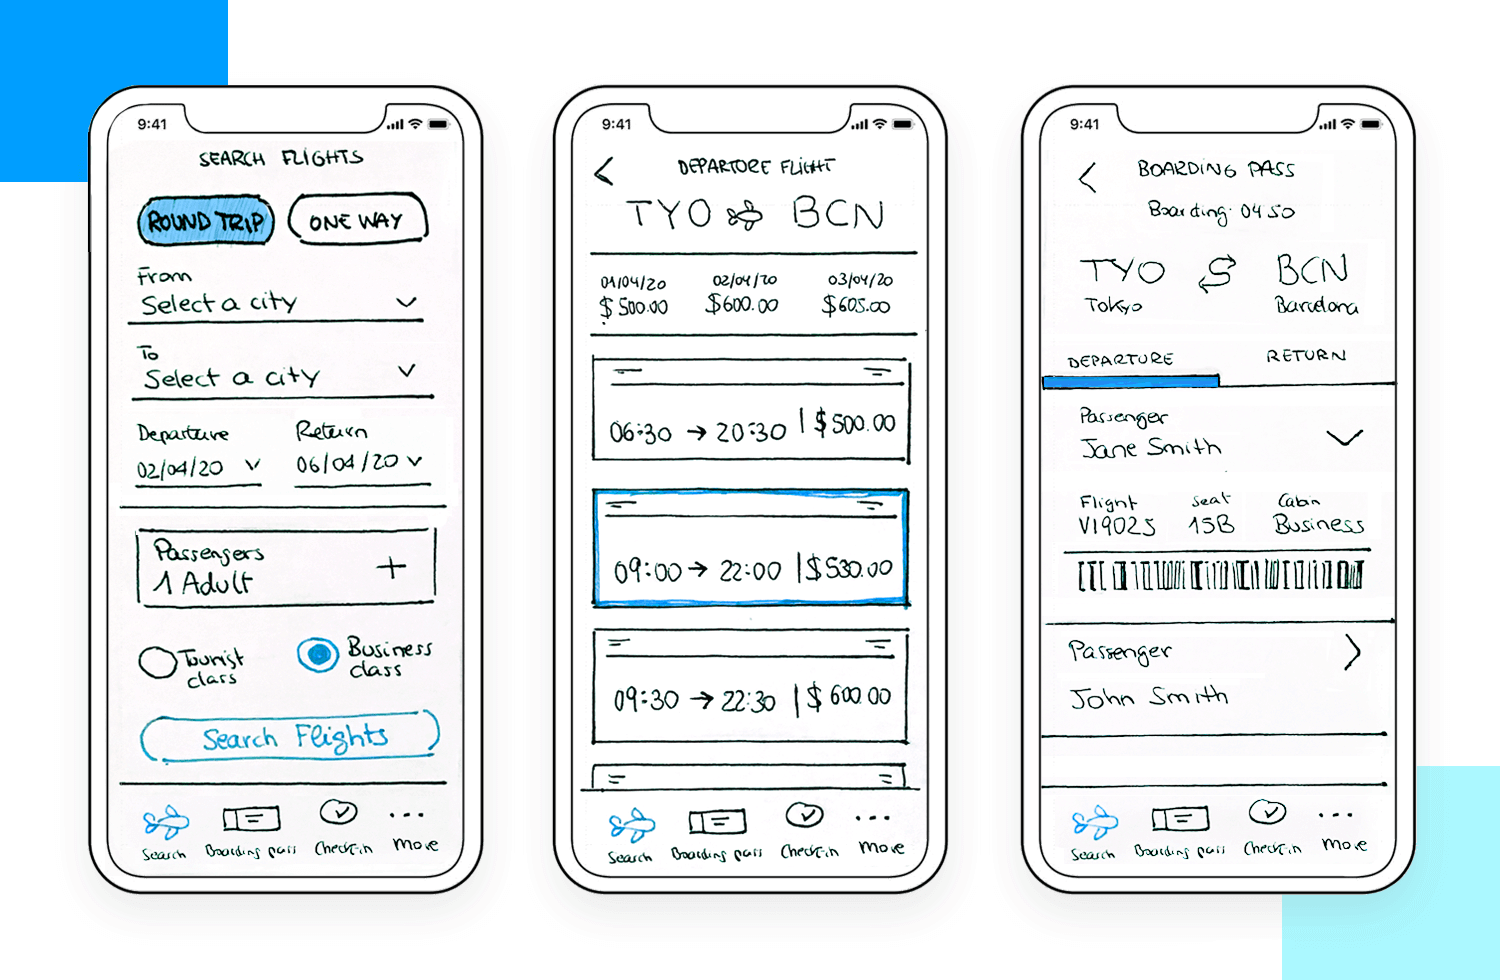 9:41
SEARCH FLIGHTS
ROUND TRIP ONE WAY
From
Select a city
To
Select a city
Departure Return
02/04/20 06/04/20
Passengers
1 Adult
Tourist class
Business class
Search Flights
Search Boarding pass Check-in More
9:41
DEPARTURE FLIGHT
TYO BCN
01/04/20 02/04/20 03/04/20
$500.00 $600.00 $605.00
06:30 → 20:30 | $500.00
09:00 → 22:00 | $530.00
09:30 → 22:30 | $600.00
Search Boarding pass Check-in More
9:41
BOARDING PASS
Boarding: 04 50
TYO BCN
Tokyo Barcelona
DEPARTURE RETURN
Passenger
Jane Smith
Flight Seat Cabin
V19025 15B Business
Passenger
John Smith
Search Boarding pass Check-in More